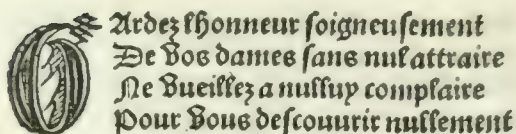 GArdez lhonneur ſoigneuſement
De Vos dames ſans nul attraire
Ne Vueillez a nulluy complaire
Pour Vous deſcouurir nullement